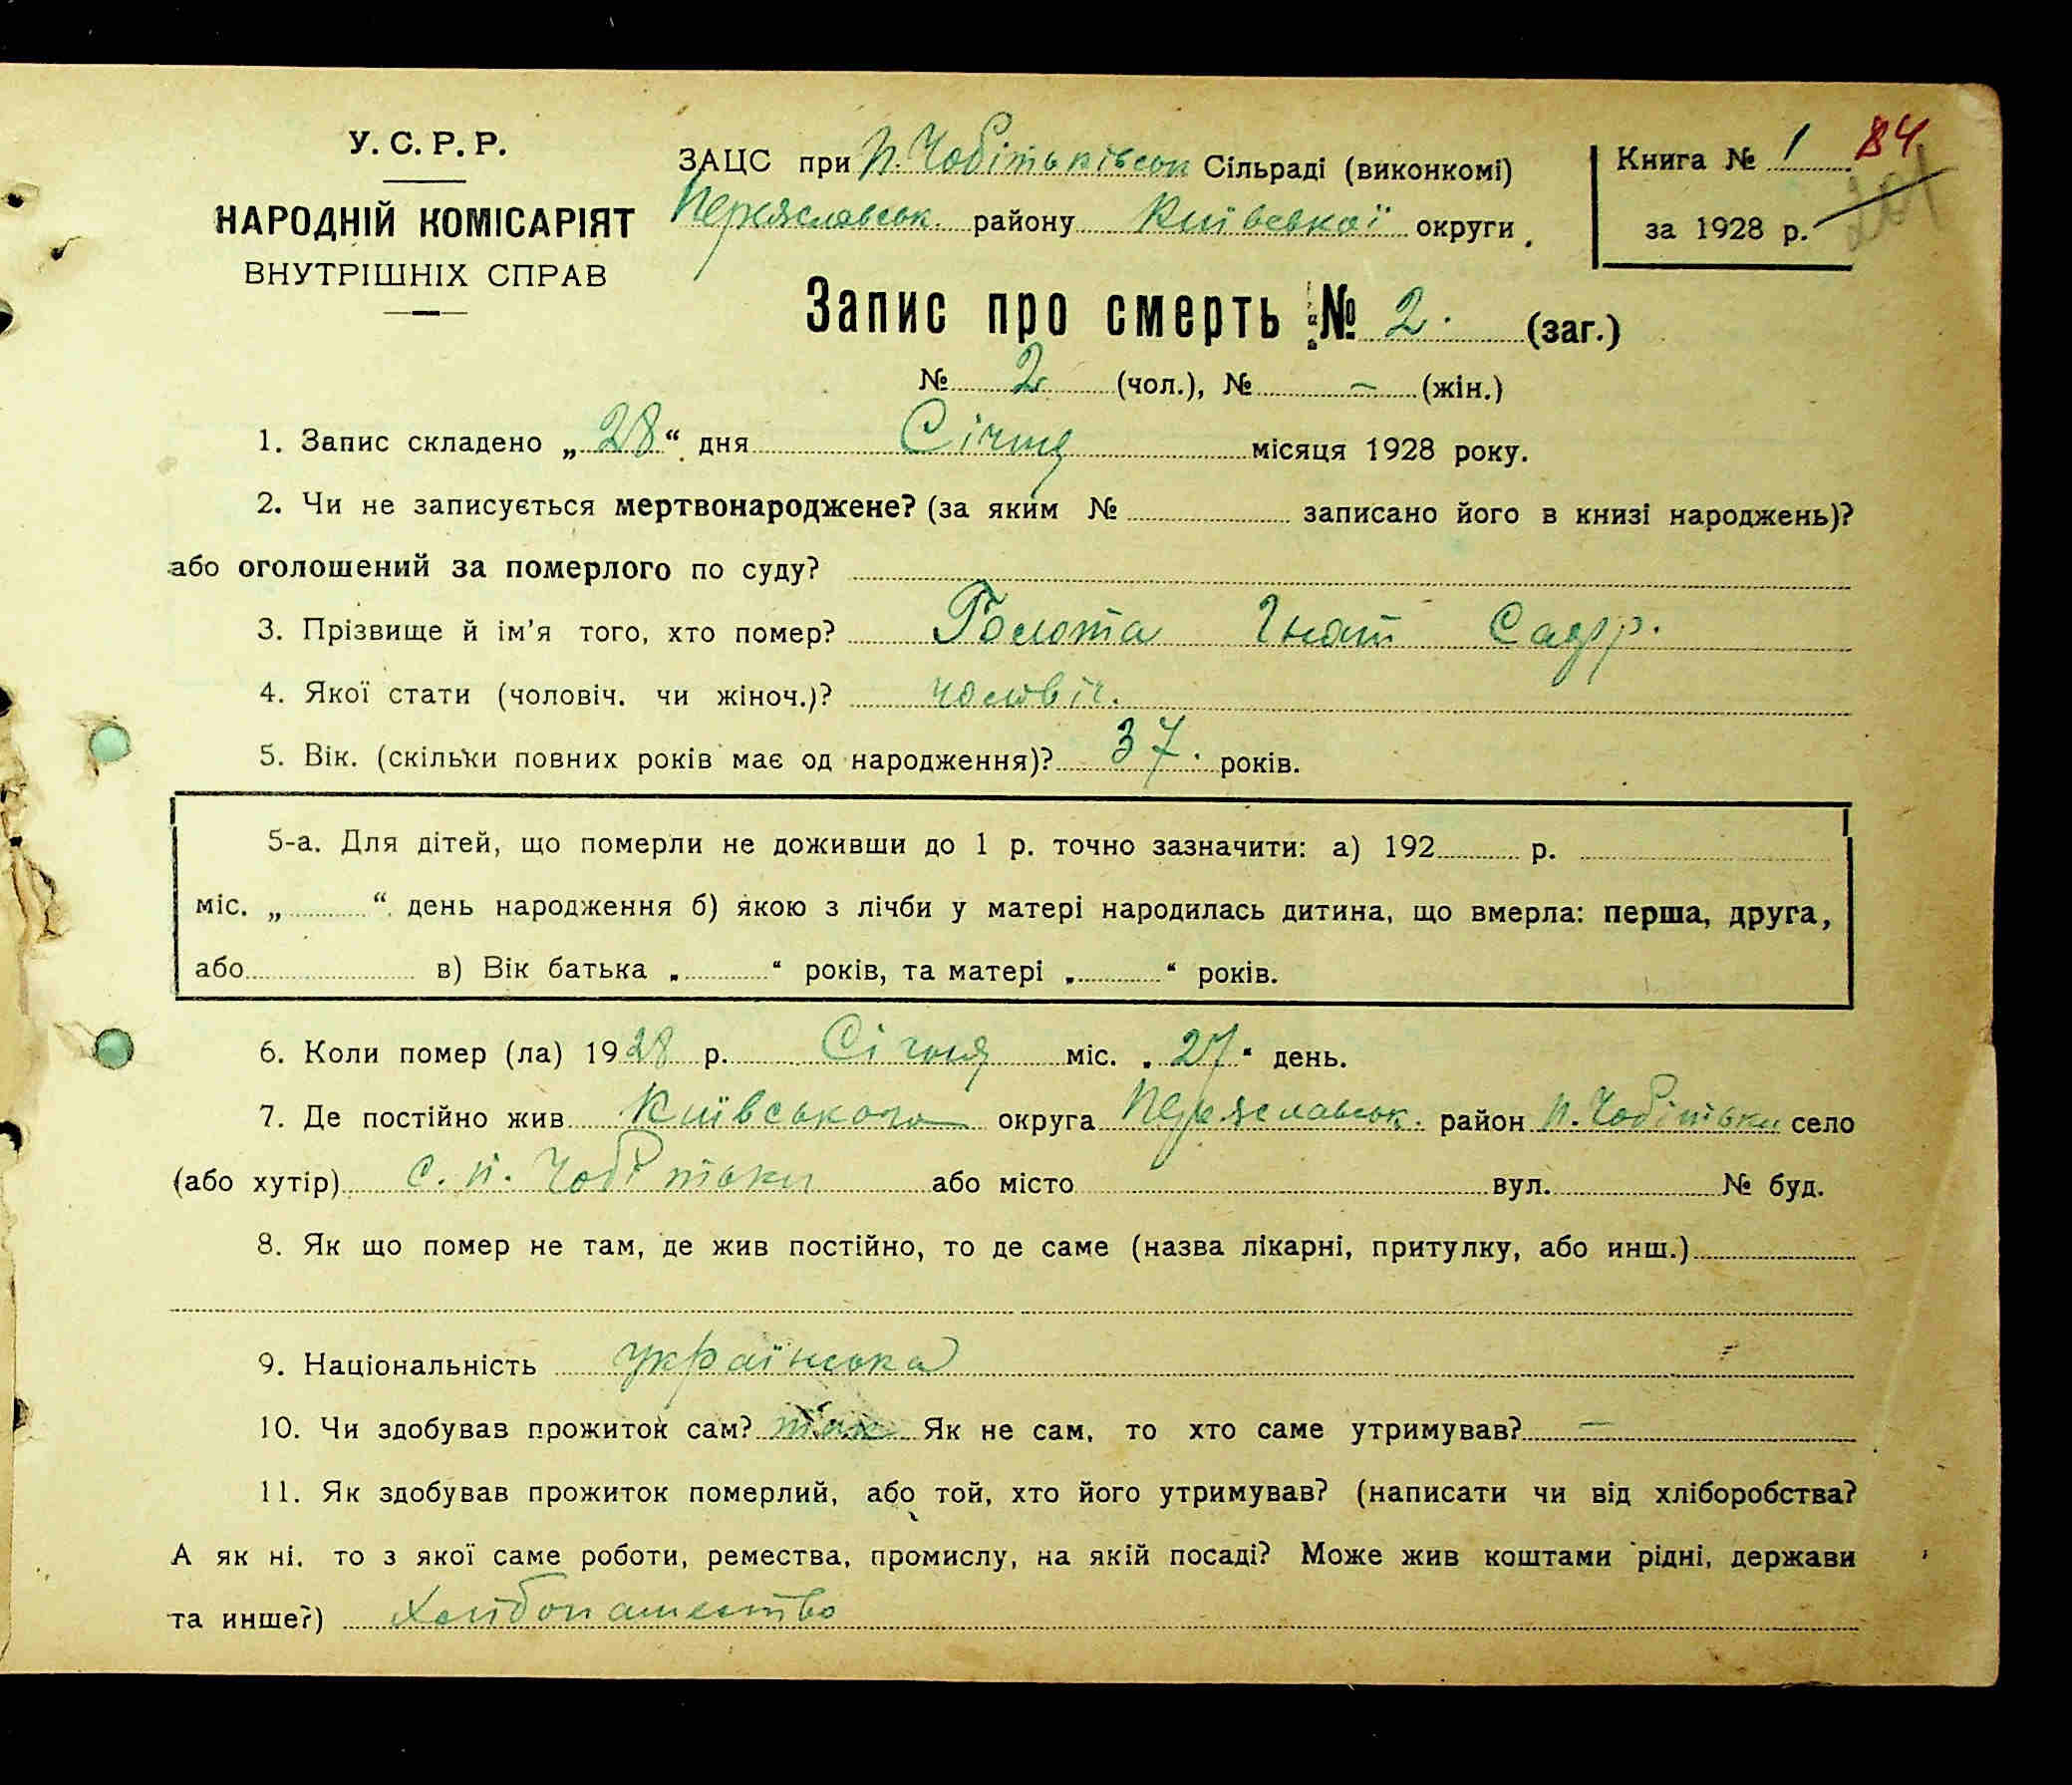 У. С. Р. Р.
НАРОДНІЙ КОМІСАРІЯТ
ВНУТРІШНІХ СПРАВ
ЗАЦС при П. Чобітьківськ Сільраді (виконкомі)
Переяславськ. району Київської округи.
Книга № 1 84
за 1928 р. 201
Запис про смерть № 2. (заг.)
№ 2 (чол.), № – (жін.)
1. Запис складено „28“ дня Січня місяця 1928 року.
2. Чи не записується мертвонароджене? (за яким № записано його в книзі народжень)?
або оголошений за померлого по суду?
3. Прізвище й ім’я того, хто помер? Голота Гнат
4. Якої стати (чоловіч. чи жіноч.)? чоловіч.
5. Вік. (скільки повних років має од народження)? 37. років.
5-а. Для дітей, що померли не доживши до 1 р. точно зазначити: а) 192 р.
міс. „ “ день народження б) якою з лічби у матері народилась дитина, що вмерла: перша, друга,
або в) Вік батька „ “ років, та матері „ “ років.
6. Коли помер (ла) 1928 р. Січня міс. „27“ день.
7. Де постійно жив Київського округа Переяславськ. район П. Чобітьки село
(або хутір) с. П. Чобітьки або місто вул. № буд.
8. Як що помер не там, де жив постійно, то де саме (назва лікарні, притулку, або инш.)
9. Національність українська
10. Чи здобував прожиток сам? так Як не сам, то хто саме утримував? –
11. Як здобував прожиток померлий, або той, хто його утримував? (написати чи від хліборобства?
А як ні, то з якої саме роботи, ремества, промислу, на якій посаді? Може жив коштами рідні, держави
та инше?) Хлібопашество